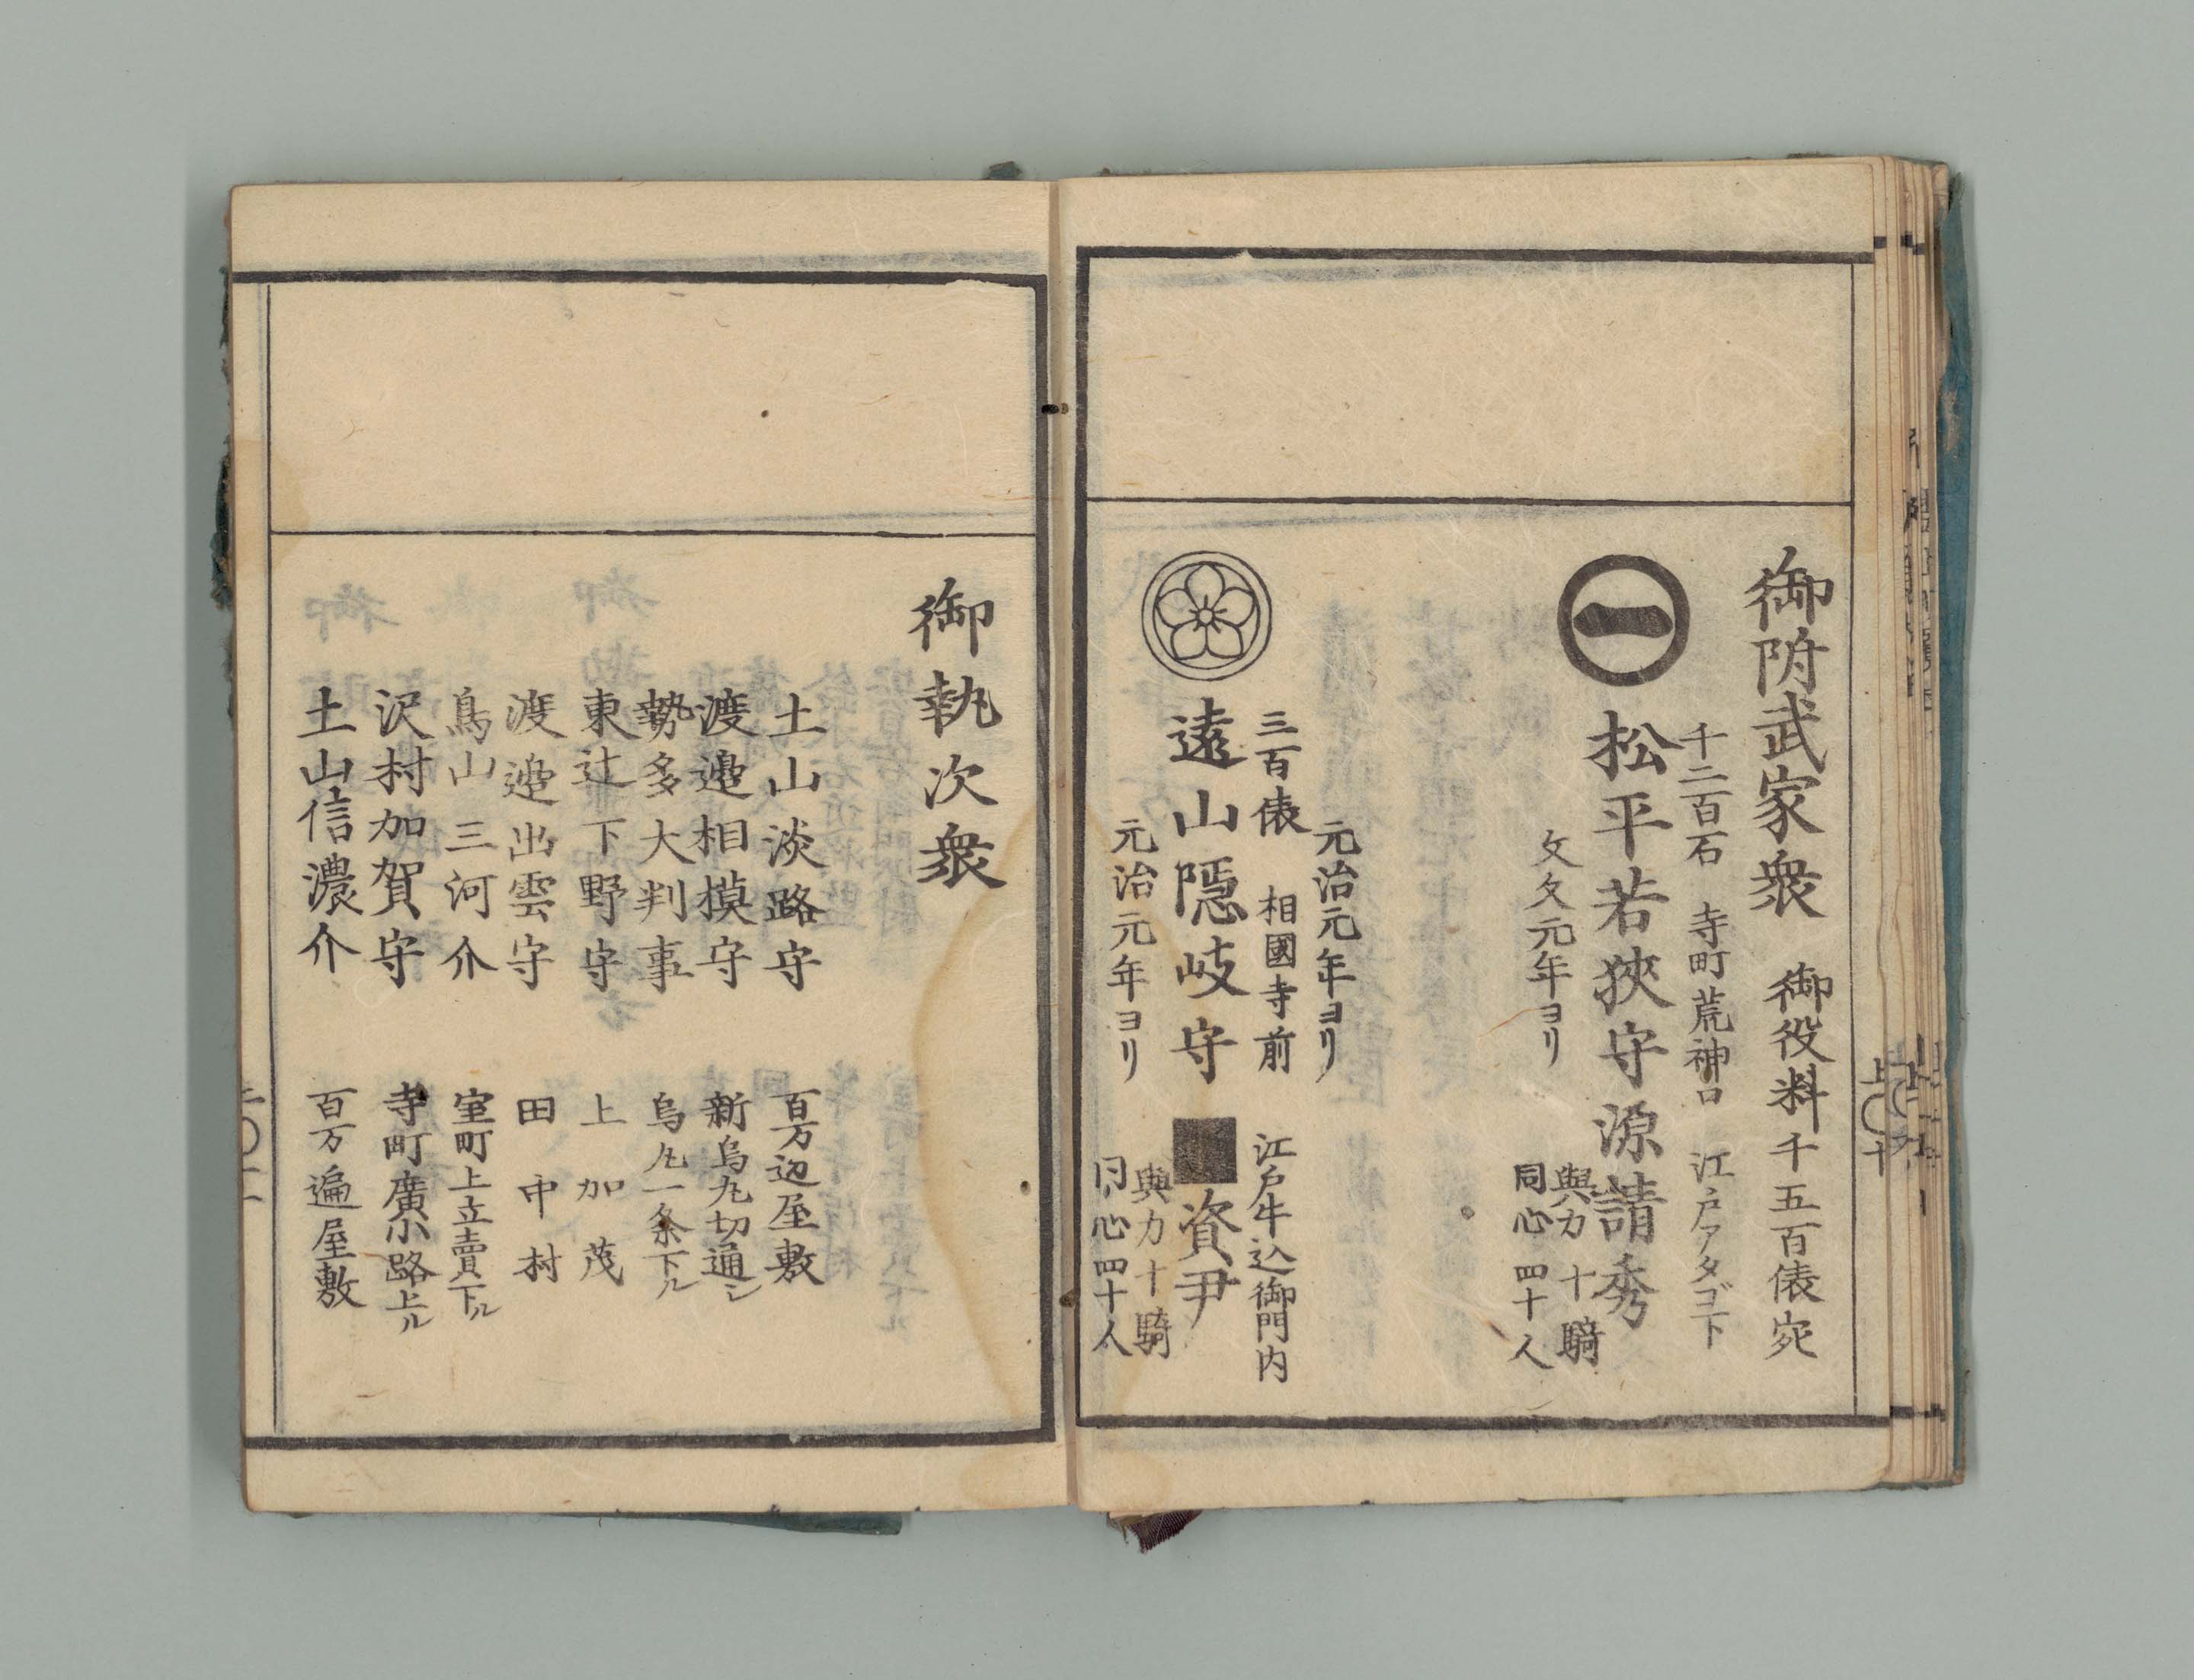 御附武家衆　御役料千五百俵宛
千二百石　寺町荒神口　江戸アタゴ下
松平若狹守源請秀
文久元年ヨリ　與力十騎
同心四十人
元治元年ヨリ
三百俵　相國寺前　江戸牛込御門内
遠山隠岐守　資尹
元治元年ヨリ　與力十騎
同心四十人
上〇十
御執次衆
土山淡路守　百万辺屋敷
渡邉相摸守　新烏丸切通シ
勢多大判事　烏丸一条下ル
東辻下野守　上加茂
渡邉出雲守　田中村
鳥山三河介　室町上立賣下ル
沢村加賀守　寺町廣小路上ル
土山信濃介　百万遍屋敷